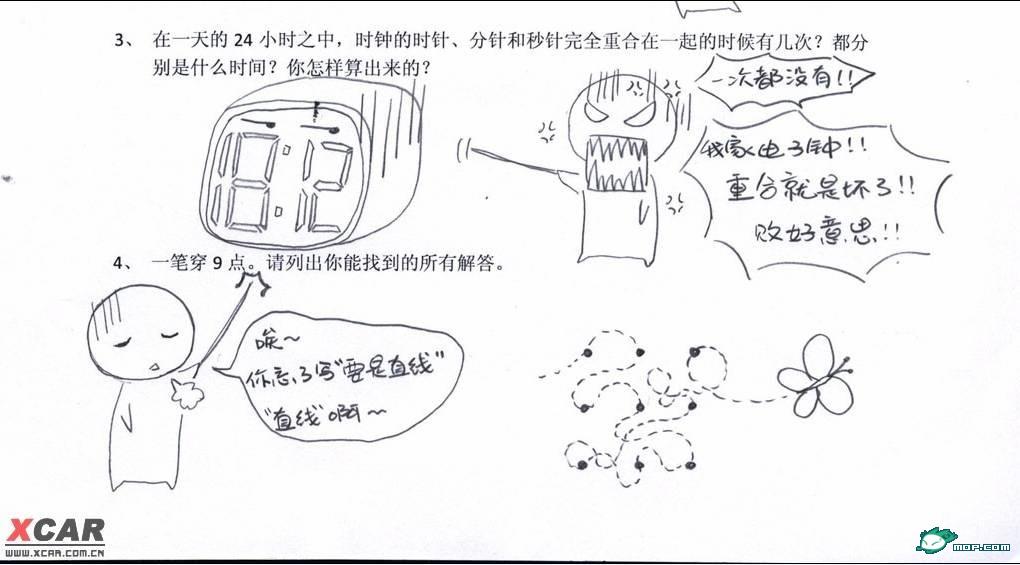 3、 在一天的 24 小时之中，时钟的时针、分针和秒针完全重合在一起的时候有几次？都分
别是什么时间？你怎样算出来的？
一次都没有!!
我家电子钟!!
重合就是坏了!!
敢好意思!!
18:12
4、 一笔穿 9 点。请列出你能找到的所有解答。
唉～
你忘了写"要是直线"
"直线"啊～
XCAR
WWW.XCAR.COM.CN
MOP.COM